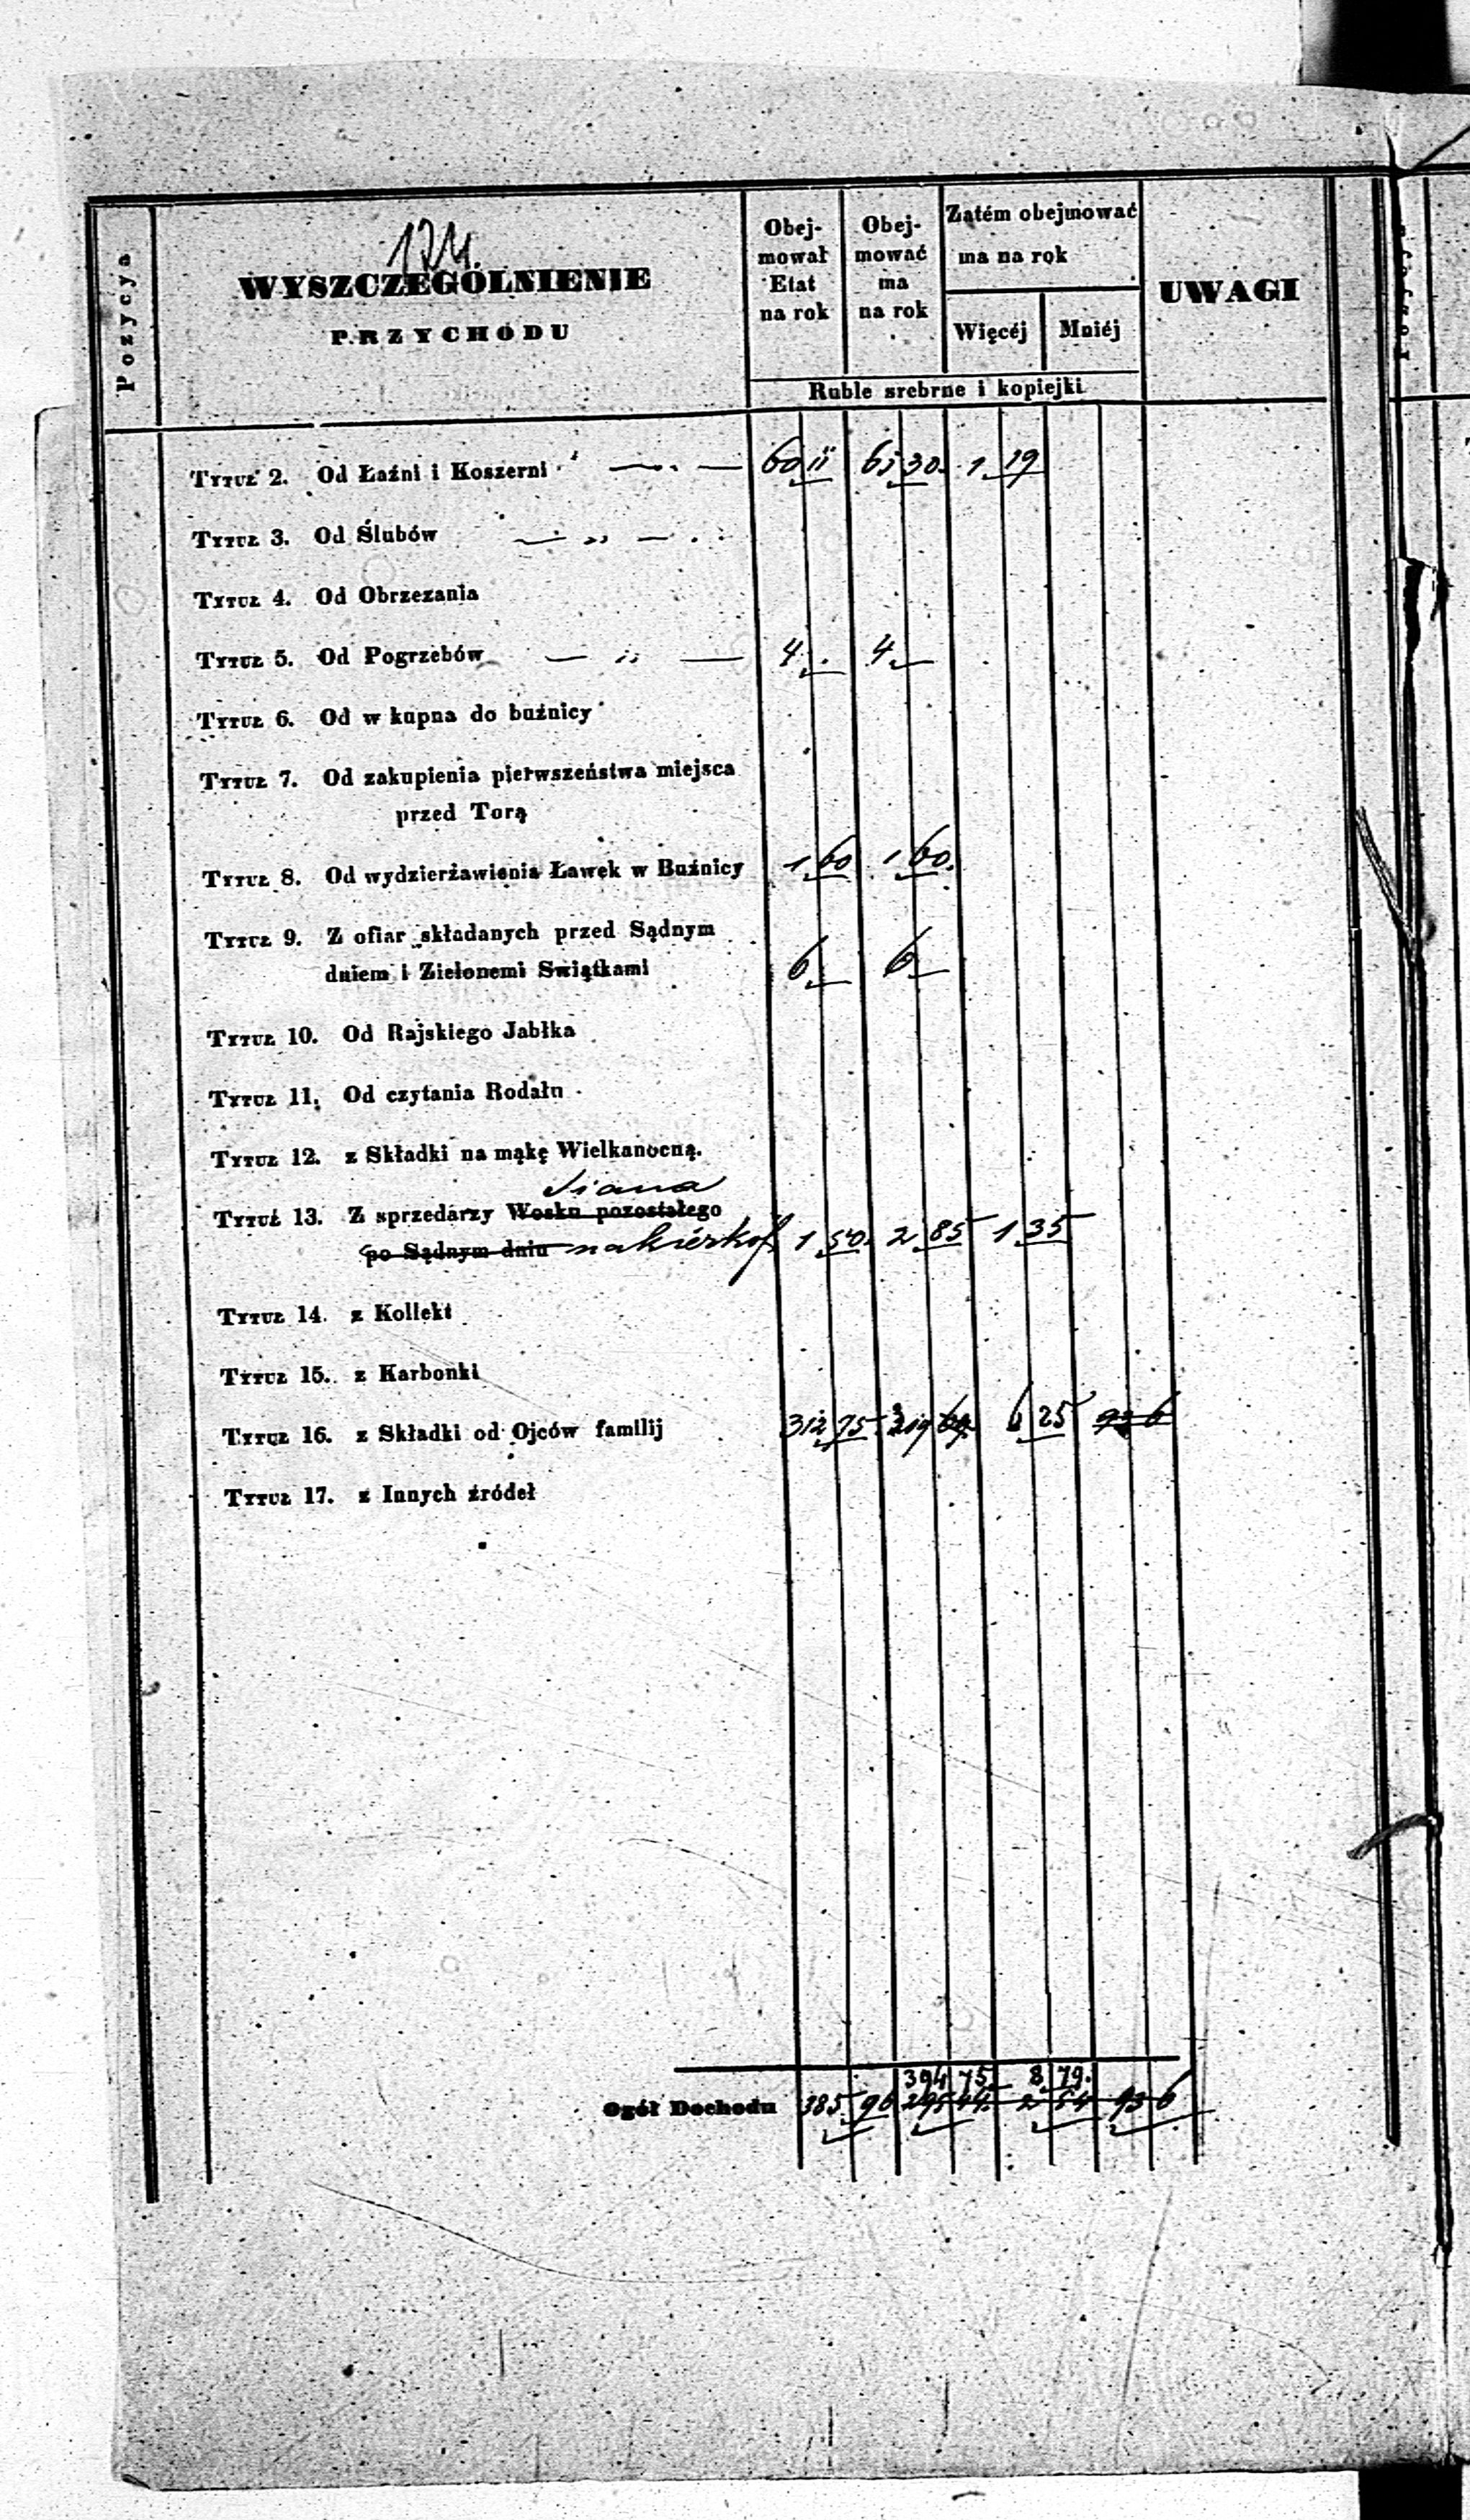 174.
Pozycya
WYSZCZEGÓLNIENIE
PRZYCHODU
Obej-
mował
Etat
na rok
Obej-
mować
ma
na rok
Zatém obejmować
ma na rok
Więcéj
Mniéj
UWAGI
Ruble srebrne i kopiejki
Tytuł 2. Od Łaźni i Koszerni 60 11 61 30. 1 19
Tytuł 3. Od Ślubów
Tytuł 4. Od Obrzezania
Tytuł 5. Od Pogrzebów 4 4
Tytuł 6. Od w kupna do buźnicy
Tytuł 7. Od zakupienia pierwszeństwa miejsca
przed Torą
Tytuł 8. Od wydzierżawienia Ławek w Buźnicy 1 60 1 60.
Tytuł 9. Z ofiar składanych przed Sądnym
dniem i Zielonemi Swiątkami 6 6
Tytuł 10. Od Rajskiego Jabłka
Tytuł 11. Od czytania Rodału
Tytuł 12. z Składki na mąkę Wielkanocną.
Siana
Tytuł 13. Z sprzedarzy Wosku pozostałego
po Sądnym dniu na kierkof 1 50. 2 85 1 35
Tytuł 14. z Kollekt
Tytuł 15. z Karbonki
Tytuł 16. z Składki od Ojców familij 312 75 6 25 93 6
Tytuł 17. z Innych źródeł
394 75 8 79.
Ogół Dochodu 385 96 295 44 2 54 93 6